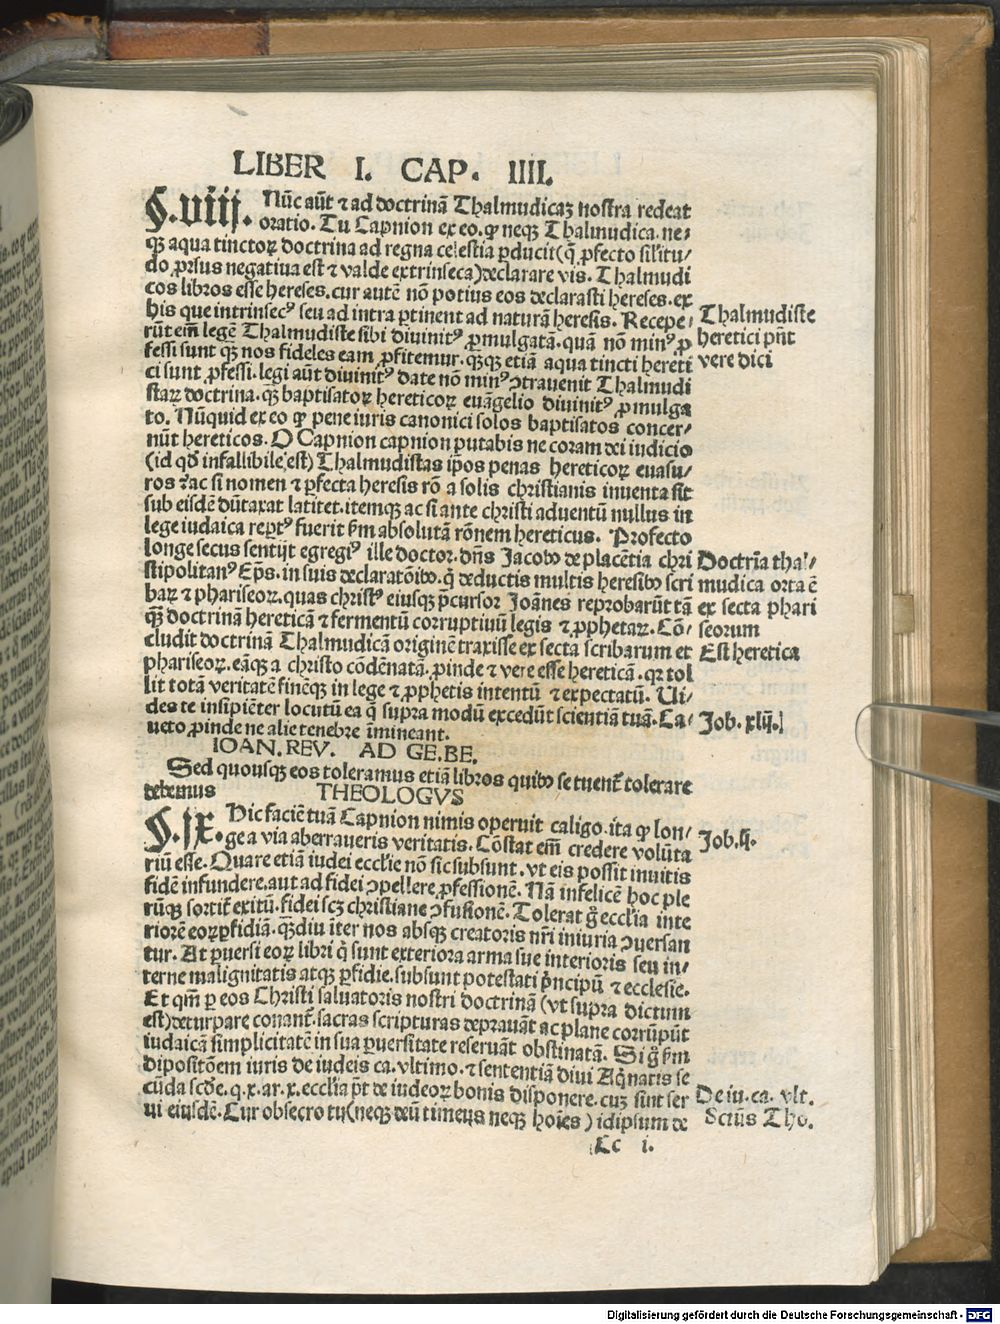 LIBER I. CAP. IIII.
§.viij. Nũc aũt ⁊ ad doctrinã Thalmudicaꝫ nostra redeat
oratio. Tu Capnion ex eo. ꝙ neqꝫ Thalmudica. ne-
qꝫ aqua tinctoꝝ doctrina ad regna celestia ꝑducit (q̃ ꝓfecto sil'itu/
do ꝓrsus negatiua est ⁊ valde extrinseca) declarare vis. Thalmudi
cos libros esse hereses. cur autẽ nõ potius eos declarasti hereses. ex
his que intrinsecꝰ seu ad intra ꝑtinent ad naturã heresis. Recepe-
rũt em̃ legẽ Thalmudiste sibi diuinitꝰ ꝓmulgatã. quã nõ minꝰ ꝓ
fessi sunt qꝫ nos fideles eam ꝓfitemur. qꝫqꝫ etiã aqua tincti hereti
ci sunt ꝓfessi. legi aũt diuinitꝰ date nõ minꝰ ↄtrauenit Thalmudi
staꝝ doctrina. qꝫ baptisatoꝝ hereticoꝝ euãgelio diuinitꝰ ꝓmulga
to. Nũquid ex eo ꝙ pene iuris canonici solos baptisatos concer-
nũt hereticos. O Capnion capnion putabis ne coram dei iudicio
(id qd̃ infallibile est) Thalmudistas ip̃os penas hereticoꝝ euasu/
ros? ac si nomen ⁊ ꝑfecta heresis rõ a solis christianis inuenta sit
sub eisdẽ dũtaxat latitet. itemqꝫ ac si ante christi aduentũ nullus in
lege iudaica reptꝰ fuerit s̃m absolutã rõnem hereticus. Profecto
longe secus sentijt egregiꝰ ille doctor. dñs Jacobꝰ de placẽtia chri
stipolitanꝰ Ep̃s. in suis declaratõibꝰ. q̃ deductis multis heresibꝰ scri
baꝝ ⁊ phariseoꝝ. quas christꝰ eiusqꝫ p̃cursor Joãnes reprobarũt tã
qꝫ doctrinã hereticã ⁊ fermentũ corruptiuũ legis ⁊ ꝓphetaꝝ. Cõ/
cludit doctrinã Thalmudicã originẽ traxisse ex secta scribarum et
phariseoꝝ. eãqꝫ a christo cõdẽnatã. ꝓinde ⁊ vere esse hereticã. qꝛ tol
lit totã veritatẽ finẽqꝫ in lege ⁊ ꝓphetis intentũ ⁊ expectatũ. Ui-
des te insipiẽter locutũ ea q̃ supra modũ excedũt scientiã tuã. Ca-
ueto ꝓinde ne alie tenebre ĩmineant.
IOAN. REV. AD GE. BE.
Sed quousqꝫ eos toleramus etiã libros quibꝰ se tuent̃ tolerare
debemus THEOLOGVS
§.ix. Hic faciẽ tuã Capnion nimis operuit caligo. ita ꝙ lon-
ge a via aberraueris veritatis. Cõstat em̃ credere volũta
riũ esse. Quare etiã iudei eccl'ie nõ sic subsunt. vt eis possit inuitis
fidẽ infundere. aut ad fidei ↄpellere ꝓfessionẽ. Nã infelicẽ hoc ple
rũqꝫ sortit̃ exitũ. fidei scꝫ christiane ↄfusionẽ. Tolerat g̃ eccl'ia inte
riorẽ eoꝝ ꝑfidiã. qꝫdiu ĩter nos absqꝫ creatoris nr̃i iniuria ↄuersan
tur. At ꝑuersi eoꝝ libri q̃ sunt exteriora arma sue interioris seu in/
terne malignitatis atqꝫ ꝑfidie. subsunt potestati p̃ncipũ ⁊ ecclesie.
Et qm̃ ꝑ eos Christi saluatoris nostri doctrinã (vt supra dictum
est) deturpare conant̃. sacras scripturas deprauãt ac plane corrũpũt
iudaicã simplicitatẽ in sua ꝑuersitate reseruãt obstinatã. Si g̃ s̃m
dipositõem iuris de iudeis ca. vltimo. ⁊ sententiã diui Aq̃natis se
cũda scd̃e. q. x. ar. x. eccl'ia põt de iudeoꝝ bonis disponere. cuꝫ sint ser
ui eiusdẽ. Cur obsecro tu (neqꝫ deũ timens neqꝫ hoĩes) idipsum de
Cc i.
Thalmudiste
heretici pñt
vere dici
Doctrĩa thal-
mudica orta ẽ
ex secta phari
seorum
Est heretica
Job. xlij.
Job. ij.
De iu. ca. vlt.
Sctũs Tho.
Digitalisierung gefördert durch die Deutsche Forschungsgemeinschaft - DFG